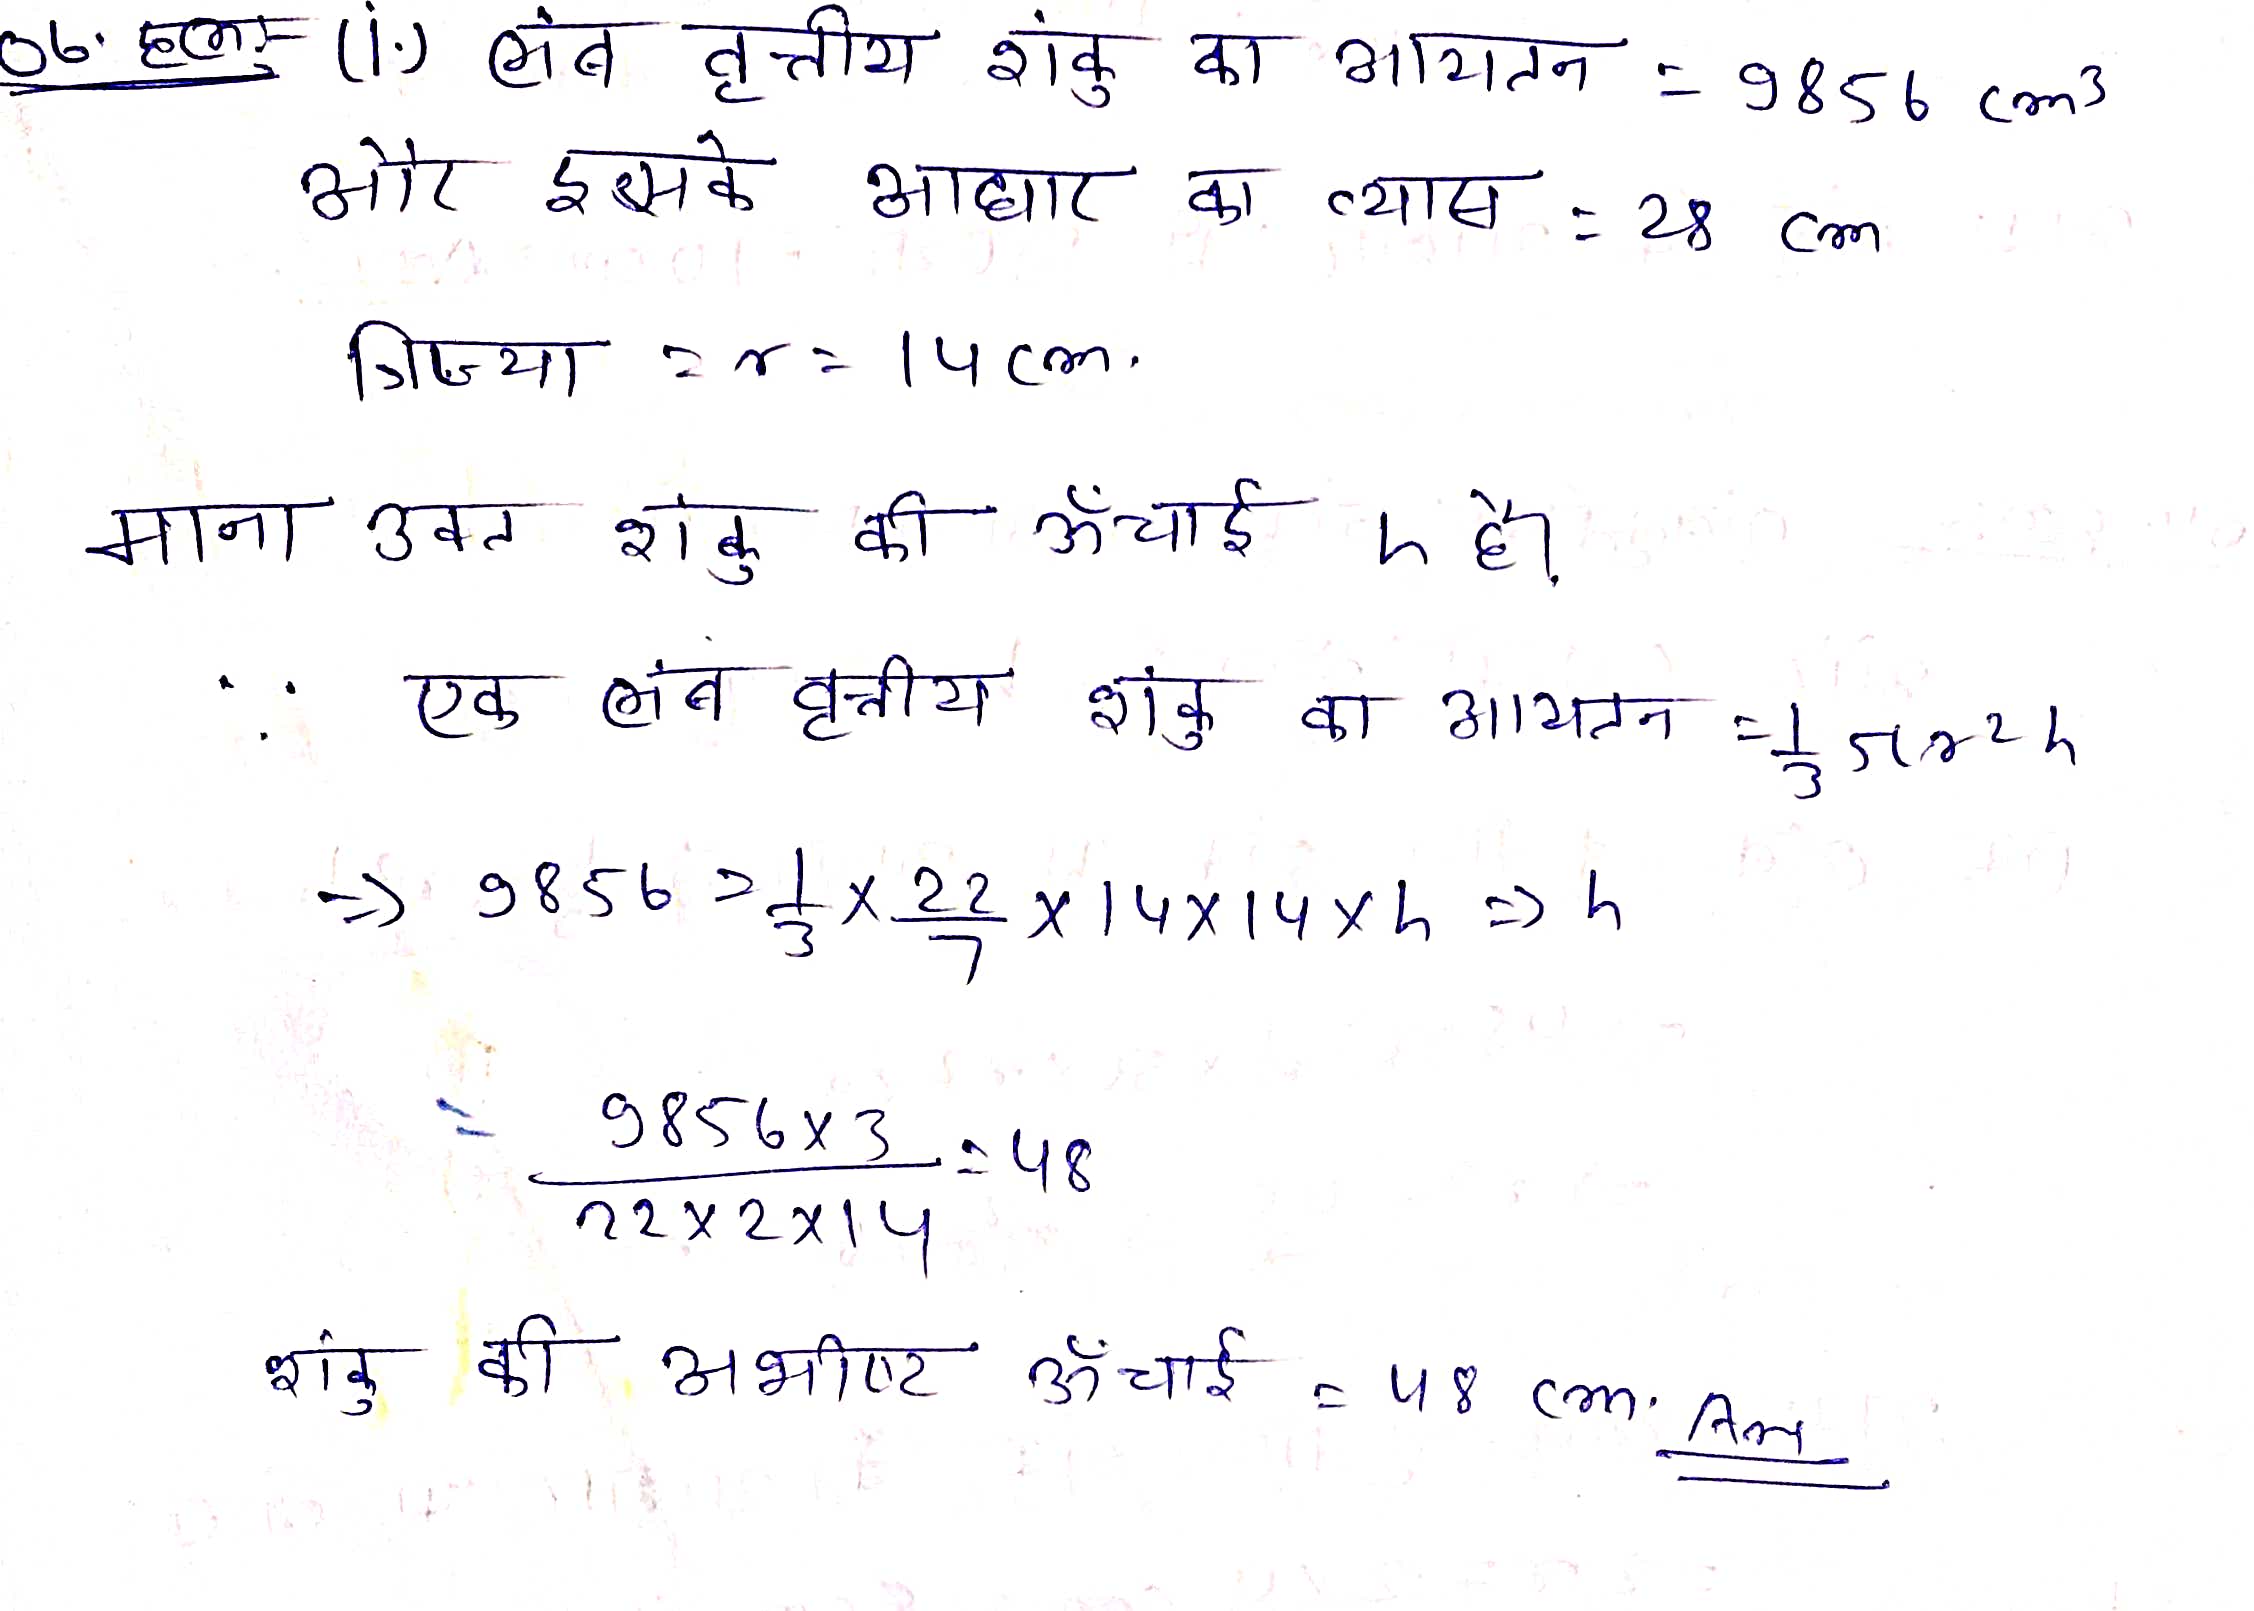 06. हल:- (i.) लंब वृत्तीय शंकु का आयतन = 9856 cm³
और इसके आधार का व्यास = 28 cm
त्रिज्या = r = 14 cm.
माना उक्त शंकु की ऊँचाई h है।
∵ एक लंब वृत्तीय शंकु का आयतन = 1/3 πr²h
⇒ 9856 = 1/3 × 22/7 × 14 × 14 × h ⇒ h
= 9856×3 / 22×2×14 = 48
शंकु की अभीष्ट ऊँचाई = 48 cm. Ans